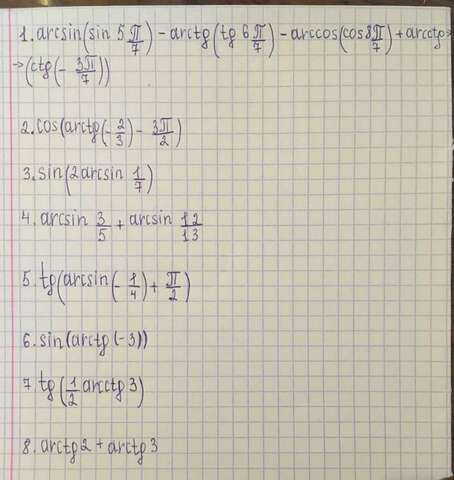 1. arcsin(sin 5π/7) - arctg(tg 6π/7) - arccos(cos 8π/7) + arcctg→
→(ctg(- 3π/7))
2. cos(arctg(-2/3) - 3π/2)
3. sin(2arcsin 1/7)
4. arcsin 3/5 + arcsin 12/13
5. tg(arcsin(-1/4) + π/2)
6. sin(arctg(-3))
7 tg(1/2 arctg 3)
8. arctg 2 + arctg 3